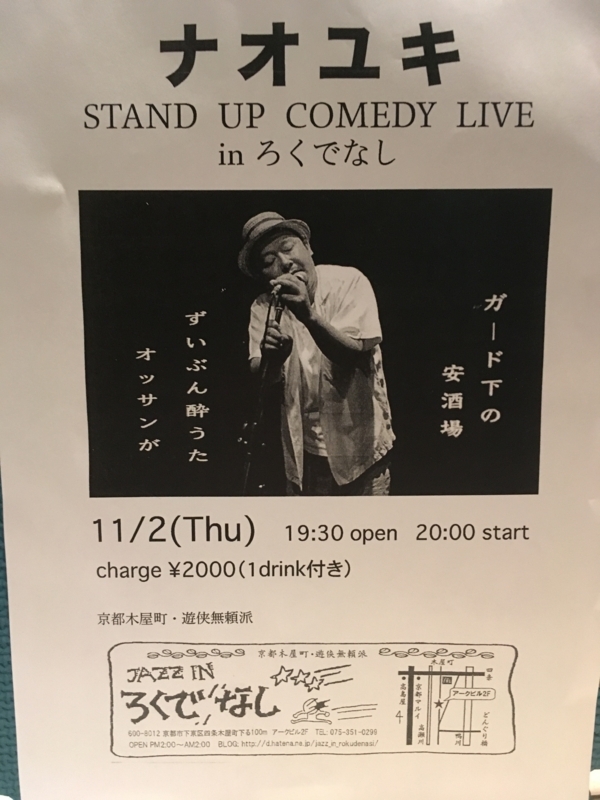 ナオユキ
STAND UP COMEDY LIVE
in ろくでなし
ガード下の
安酒場
ずいぶん酔うた
オッサンが
11/2(Thu) 19:30 open 20:00 start
charge ¥2000(1drink付き)
京都木屋町・遊侠無頼派
京都木屋町・遊侠無頼派
JAZZ IN
ろくでなし
600-8012 京都市下京区四条木屋町下る100m アークビル2F TEL: 075-351-0299
OPEN PM2:00〜AM2:00 BLOG: http://d.hatena.ne.jp/jazz_in_rokudenasi/
木屋町
四条
アークビル2F
高島屋
京都マルイ
高瀬川
鴨川
どんぐり橋